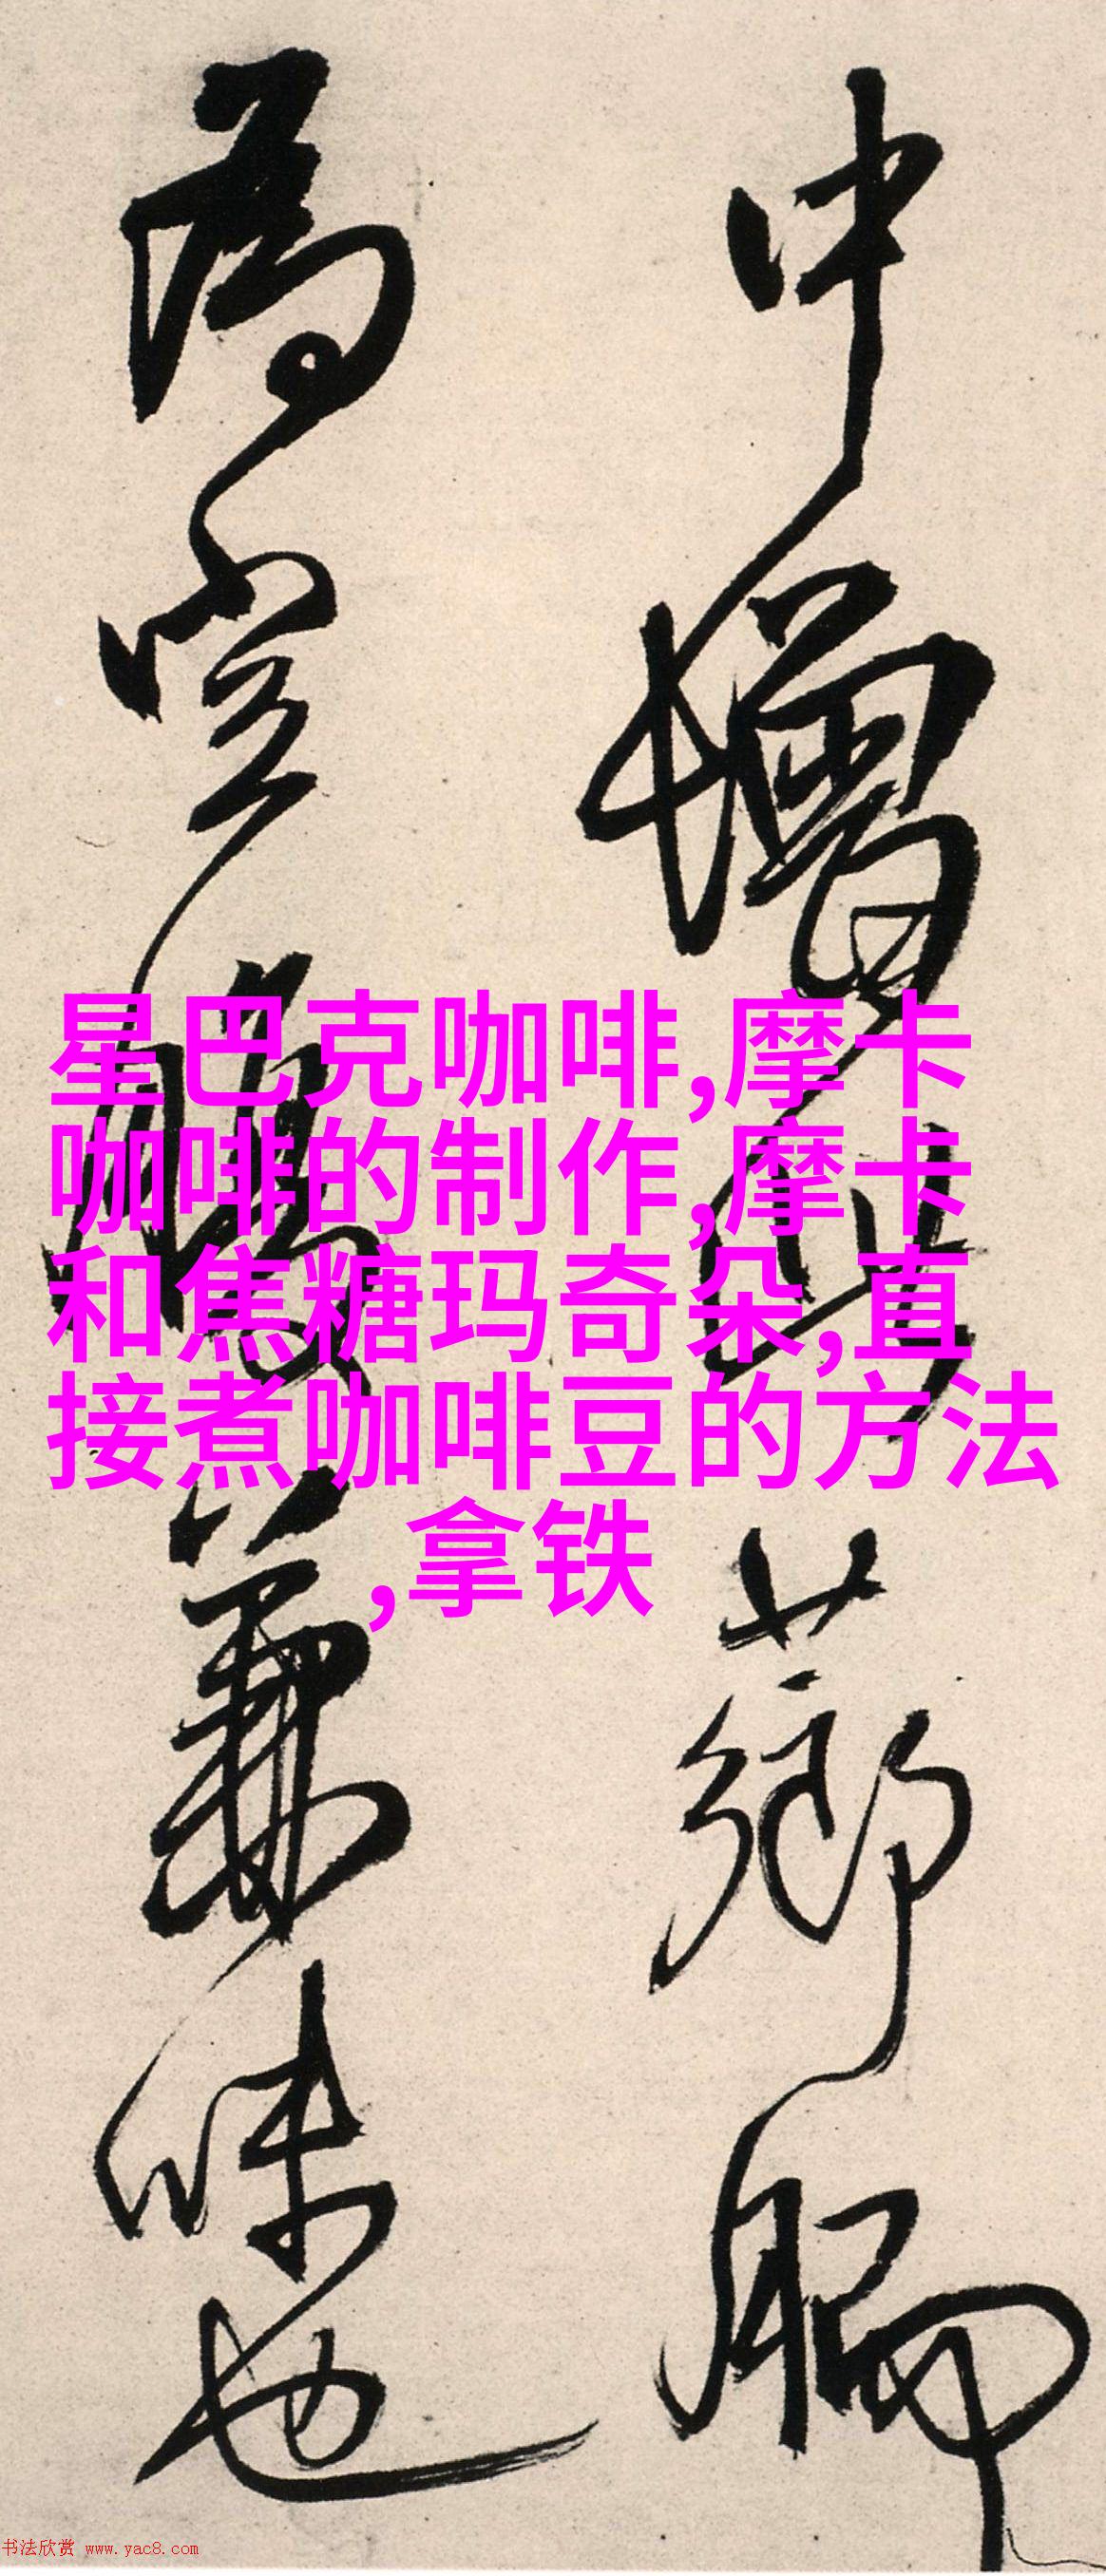 中增煎芗膈
为空腸兼味也
星巴克咖啡,摩卡
咖啡的制作,摩卡
和焦糖玛奇朵,直
接煮咖啡豆的方法
,拿铁
书法欣赏 www.yac8.com